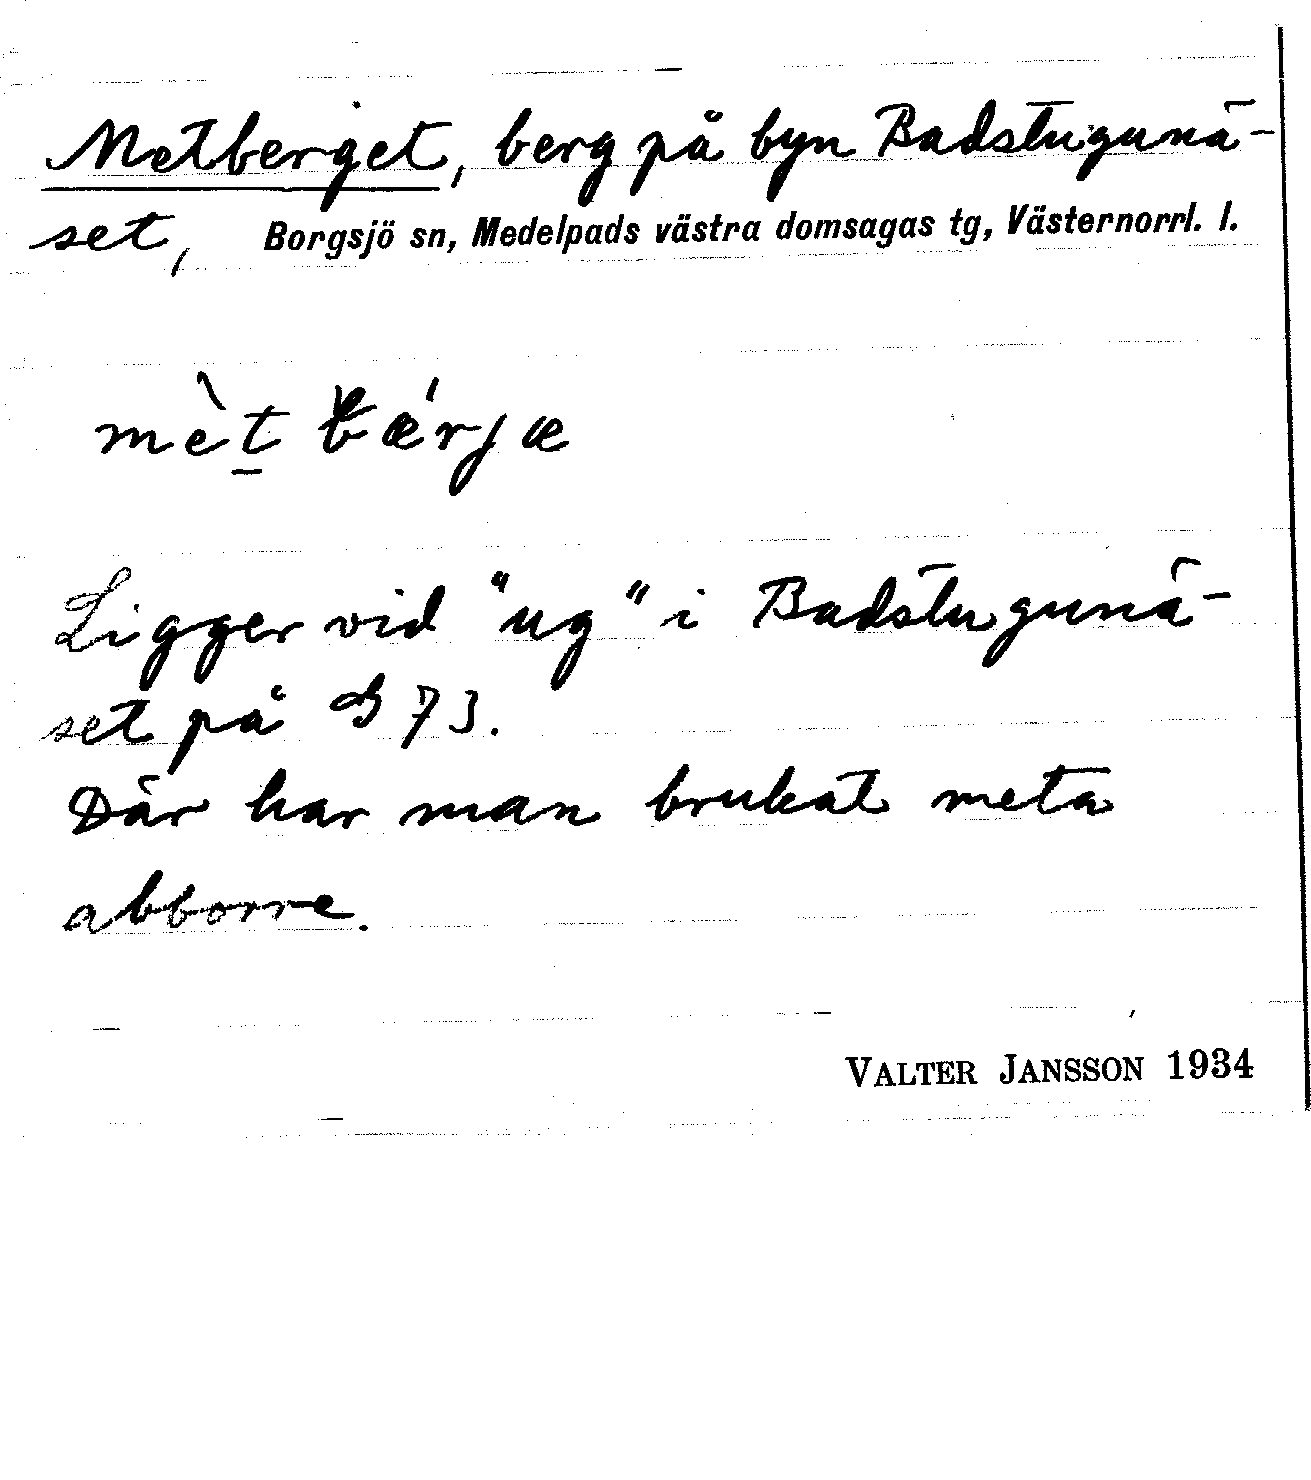 Metberget, berg på byn Badstugunä-
set, Borgsjö sn, Medelpads västra domsagas tg, Västernorrl. l.
mèt bǽrjæ
Ligger vid "ug" i Badstugunä-
set på B 73.
Där har man brukat meta
abborre.
VALTER JANSSON 1934